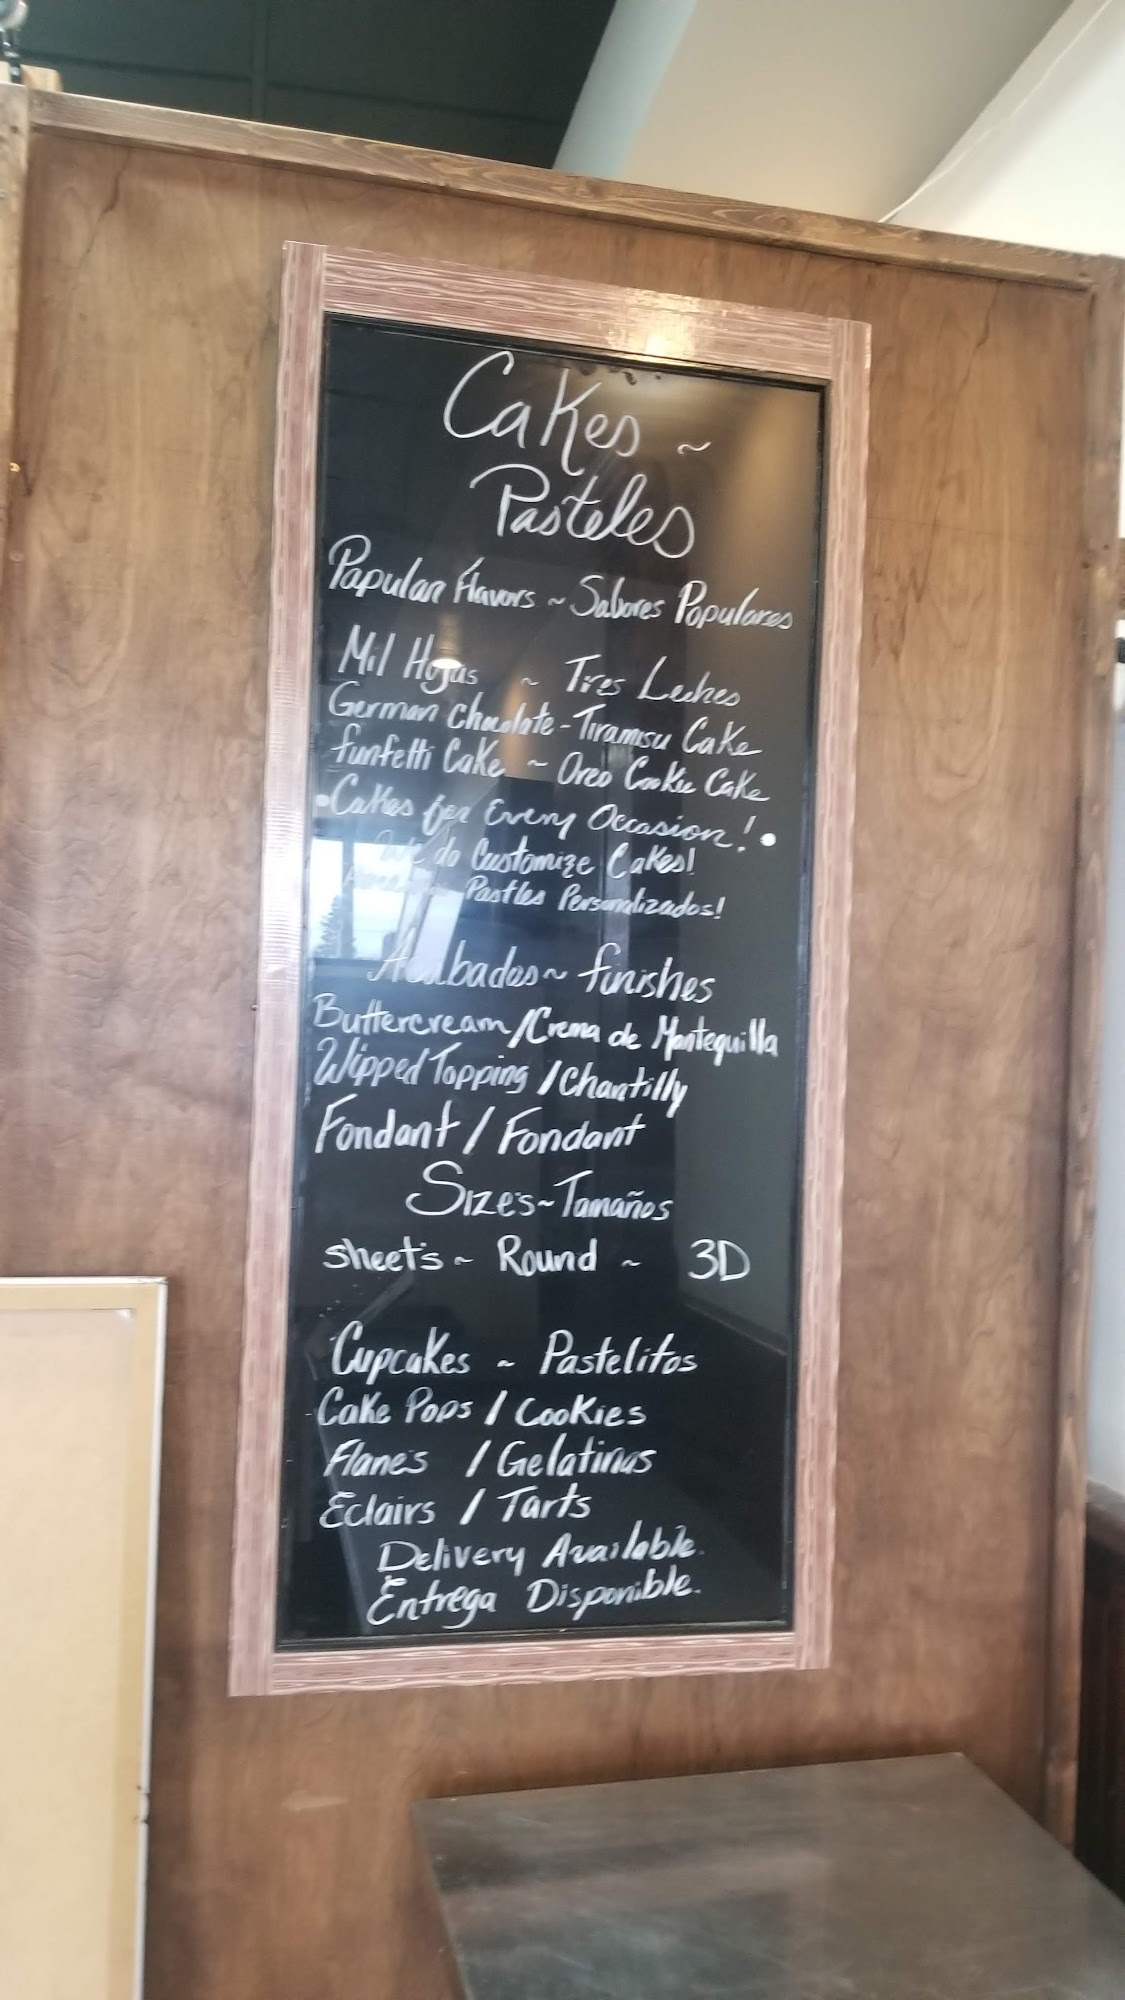 Cakes ~
Pasteles
Papular Flavors ~ Sabores Populares
Mil Hojas ~ Tres Leches
German Chocolate - Tiramisu Cake
funfetti Cake ~ Oreo Cookie Cake
•Cakes for Every Occasion!•
We do Customize Cakes!
Pastles Personalizados!
Acabados ~ finishes
Buttercream / Crema de Mantequilla
Wipped Topping / Chantilly
Fondant / Fondant
Size's ~ Tamaños
sheet's ~ Round ~ 3D
Cupcakes ~ Pastelitos
Cake Pops / Cookies
Flane's / Gelatinas
Eclairs / Tarts
Delivery Available.
Entrega Disponible.